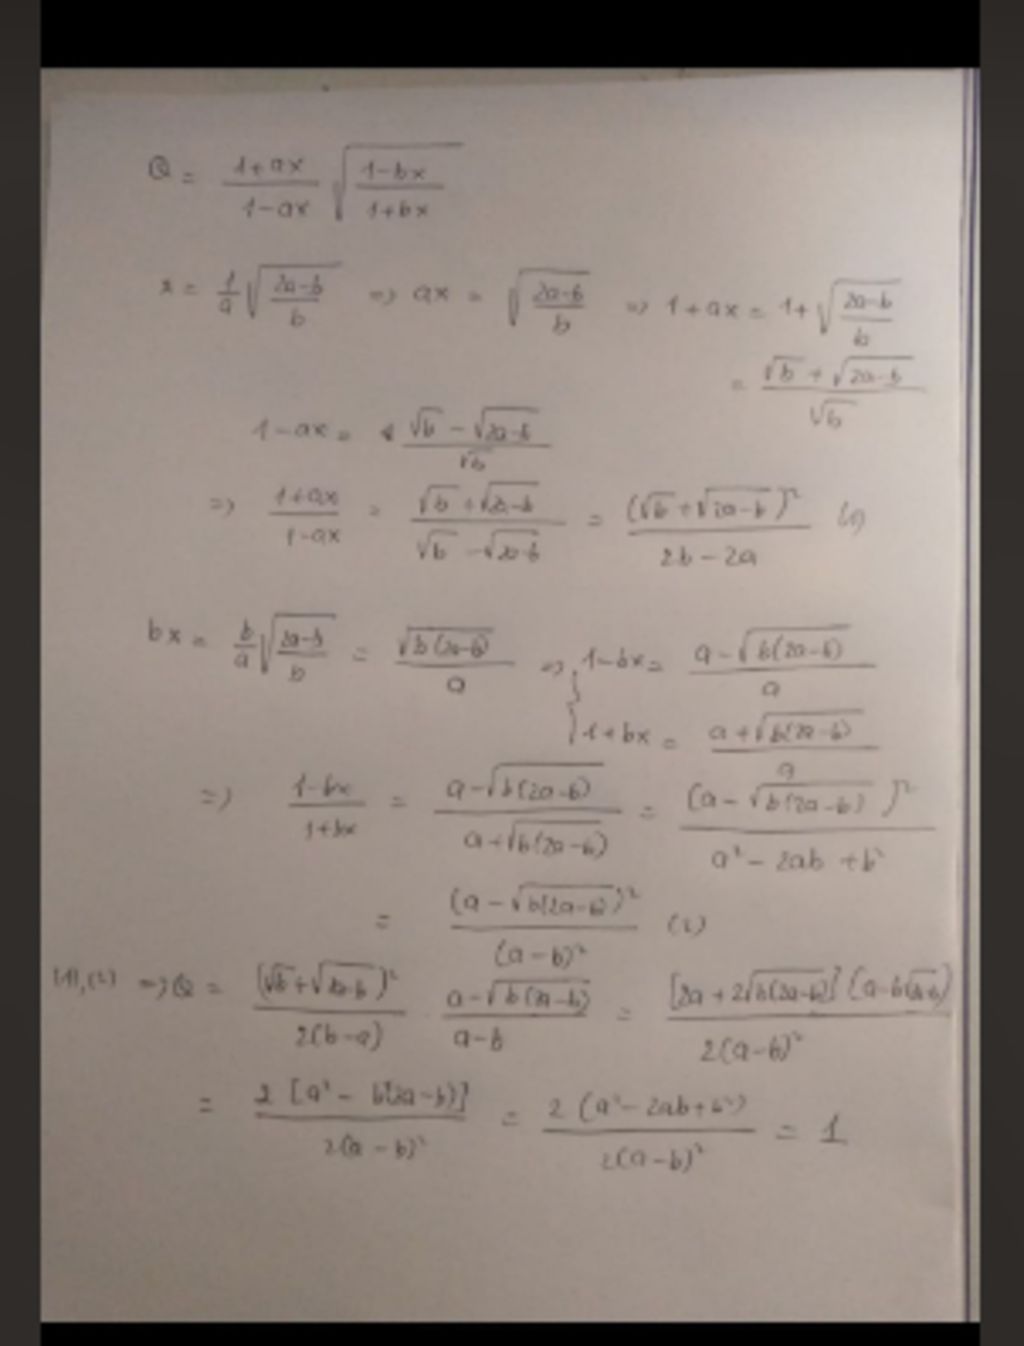 Q = \frac{1+ax}{1-ax} \sqrt{\frac{1-bx}{1+bx}}
x = \frac{1}{a}\sqrt{\frac{2a-b}{b}} => ax = \sqrt{\frac{2a-b}{b}} => 1+ax = 1+\sqrt{\frac{2a-b}{b}}
= \frac{\sqrt{b}+\sqrt{2a-b}}{\sqrt{b}}
1-ax = \frac{\sqrt{b}-\sqrt{2a-b}}{\sqrt{b}}
=> \frac{1+ax}{1-ax} = \frac{\sqrt{b}+\sqrt{2a-b}}{\sqrt{b}-\sqrt{2a-b}} = \frac{(\sqrt{b}+\sqrt{2a-b})^2}{2b-2a} (1)
bx = \frac{b}{a}\sqrt{\frac{2a-b}{b}} = \frac{\sqrt{b(2a-b)}}{a} => { 1-bx = \frac{a-\sqrt{b(2a-b)}}{a}
1+bx = \frac{a+\sqrt{b(2a-b)}}{a}
=> \frac{1-bx}{1+bx} = \frac{a-\sqrt{b(2a-b)}}{a+\sqrt{b(2a-b)}} = \frac{(a-\sqrt{b(2a-b)})^2}{a^2-2ab+b^2}
= \frac{(a-\sqrt{b(2a-b)})^2}{(a-b)^2} (2)
(1),(2) => Q = \frac{(\sqrt{b}+\sqrt{2a-b})^2}{2(b-a)} . \frac{a-\sqrt{b(2a-b)}}{a-b} = \frac{[2a+2\sqrt{b(2a-b)}]}{2(a-b)^2}
= \frac{2[a^2-b(2a-b)]}{2(a-b)^2} = \frac{2(a^2-2ab+b^2)}{2(a-b)^2} = 1